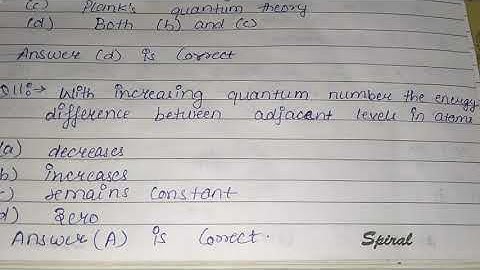 (c) Plank's quantum theory
(d) Both (b) and (c)
Answer (d) is Correct
Q11:→ With increasing quantum number the energy
difference between adjacent levels in atoms
(a) decreases
(b) increases
(c) remains constant
(d) Zero
Answer (A) is Correct.
Spiral